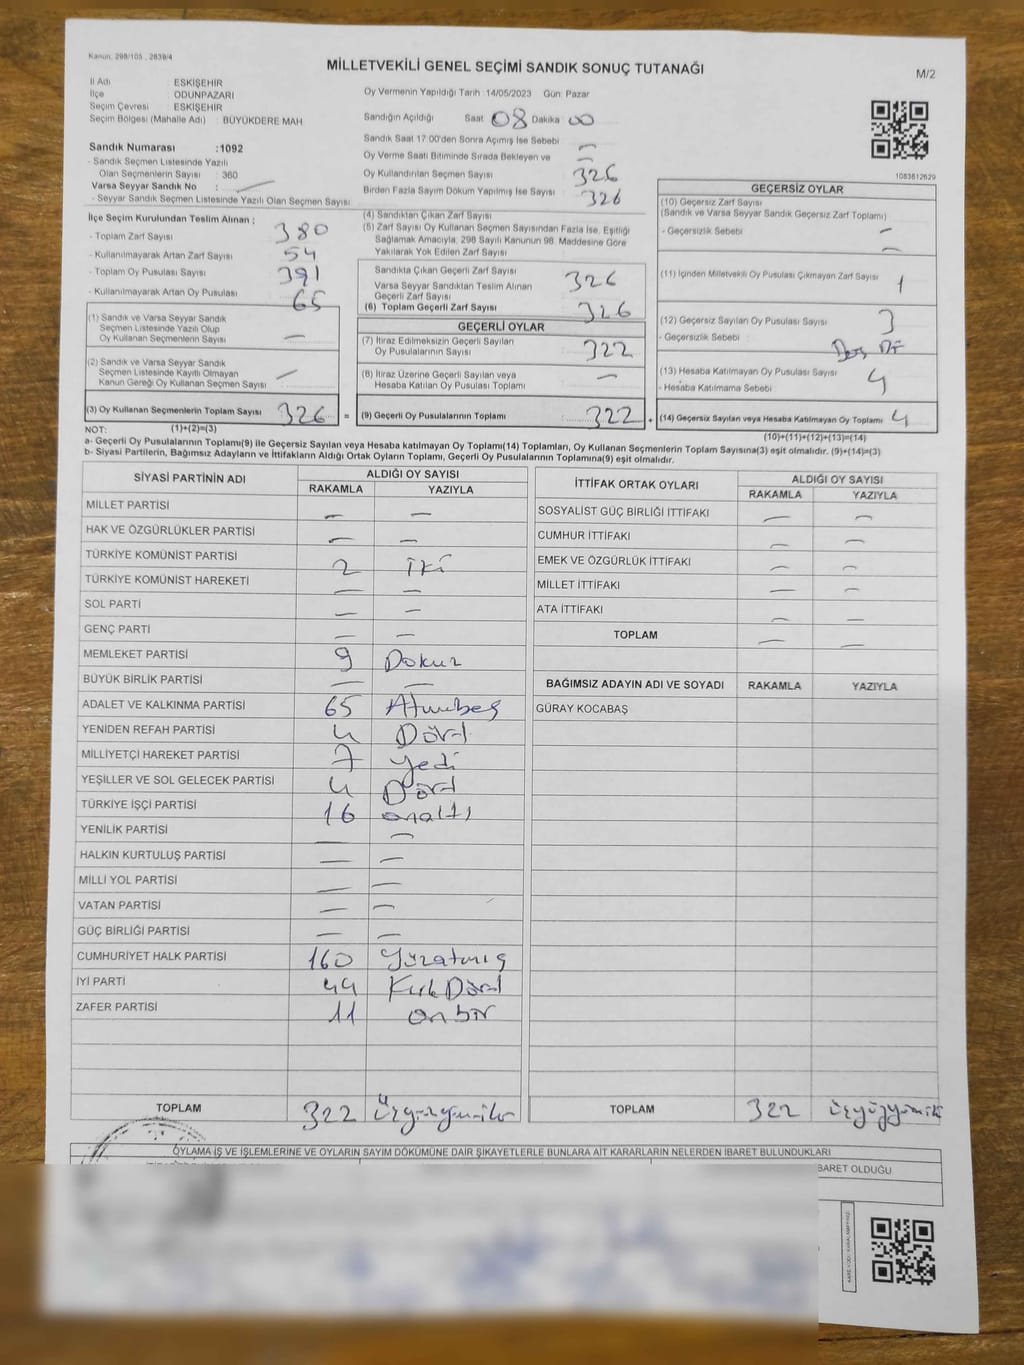 Kanun, 298/105 , 2839/4
MİLLETVEKİLİ GENEL SEÇİMİ SANDIK SONUÇ TUTANAĞI
M/2
İl Adı ESKİŞEHİR
İlçe ODUNPAZARI
Seçim Çevresi : ESKİŞEHİR
Seçim Bölgesi (Mahalle Adı) : BÜYÜKDERE MAH
Oy Vermenin Yapıldığı Tarih :14/05/2023 Gün: Pazar
Sandığın Açıldığı Saat 08 Dakika 00
Sandık Saat 17:00'den Sonra Açımış İse Sebebi —
Oy Verme Saati Bitiminde Sırada Bekleyen ve —
Oy Kullandırılan Seçmen Sayısı 326
Birden Fazla Sayım Döküm Yapılmış İse Sayısı 326
1083812629
Sandık Numarası :1092
- Sandık Seçmen Listesinde Yazılı
Olan Seçmenlerin Sayısı : 360
Varsa Seyyar Sandık No :
- Seyyar Sandık Seçmen Listesinde Yazılı Olan Seçmen Sayısı
İlçe Seçim Kurulundan Teslim Alınan :
- Toplam Zarf Sayısı 380
- Kullanılmayarak Artan Zarf Sayısı 54
- Toplam Oy Pusulası Sayısı 391
- Kullanılmayarak Artan Oy Pusulası 65
(1) Sandık ve Varsa Seyyar Sandık
Seçmen Listesinde Yazılı Olup
Oy Kullanan Seçmenlerin Sayısı —
(2) Sandık ve Varsa Seyyar Sandık
Seçmen Listesinde Kayıtlı Olmayan
Kanun Gereği Oy Kullanan Seçmen Sayısı : —
(3) Oy Kullanan Seçmenlerin Toplam Sayısı 326 =
(4) Sandıktan Çıkan Zarf Sayısı
(5) Zarf Sayısı Oy Kullanan Seçmen Sayısından Fazla İse, Eşitliği
Sağlamak Amacıyla, 298 Sayılı Kanunun 98. Maddesine Göre
Yakılarak Yok Edilen Zarf Sayısı
Sandıkta Çıkan Geçerli Zarf Sayısı 326
Varsa Seyyar Sandıktan Teslim Alınan
Geçerli Zarf Sayısı
(6) Toplam Geçerli Zarf Sayısı 326
GEÇERLİ OYLAR
(7) İtiraz Edilmeksizin Geçerli Sayılan
Oy Pusulalarının Sayısı 322
(8) İtiraz Üzerine Geçerli Sayılan veya
Hesaba Katılan Oy Pusulası Toplamı —
(9) Geçerli Oy Pusulalarının Toplamı 322 +
GEÇERSİZ OYLAR
(10) Geçersiz Zarf Sayısı
(Sandık ve Varsa Seyyar Sandık Geçersiz Zarf Toplamı)
- Geçersizlik Sebebi —
—
(11) İçinden Milletvekili Oy Pusulası Çıkmayan Zarf Sayısı 1
(12) Geçersiz Sayılan Oy Pusulası Sayısı 3
- Geçersizlik Sebebi
(13) Hesaba Katılmayan Oy Pusulası Sayısı 4
- Hesaba Katılmama Sebebi
(14) Geçersiz Sayılan veya Hesaba Katılmayan Oy Toplamı 4
NOT: (1)+(2)=(3)
(10)+(11)+(12)+(13)=(14)
a- Geçerli Oy Pusulalarının Toplamı(9) ile Geçersiz Sayılan veya Hesaba katılmayan Oy Toplamı(14) Toplamları, Oy Kullanan Seçmenlerin Toplam Sayısına(3) eşit olmalıdır. (9)+(14)=(3)
b- Siyasi Partilerin, Bağımsız Adayların ve İttifakların Aldığı Ortak Oyların Toplamı, Geçerli Oy Pusulalarının Toplamına(9) eşit olmalıdır.
SİYASİ PARTİNİN ADI ALDIĞI OY SAYISI
RAKAMLA YAZIYLA
MİLLET PARTİSİ — —
HAK VE ÖZGÜRLÜKLER PARTİSİ — —
TÜRKİYE KOMÜNİST PARTİSİ 2 İki
TÜRKİYE KOMÜNİST HAREKETİ — —
SOL PARTİ — —
GENÇ PARTİ — —
MEMLEKET PARTİSİ 9 Dokuz
BÜYÜK BİRLİK PARTİSİ — —
ADALET VE KALKINMA PARTİSİ 65 Atmıbeş
YENİDEN REFAH PARTİSİ 4 Dört
MİLLİYETÇİ HAREKET PARTİSİ 7 Yedi
YEŞİLLER VE SOL GELECEK PARTİSİ 4 Dört
TÜRKİYE İŞÇİ PARTİSİ 16 onaltı
YENİLİK PARTİSİ — —
HALKIN KURTULUŞ PARTİSİ — —
MİLLİ YOL PARTİSİ — —
VATAN PARTİSİ — —
GÜÇ BİRLİĞİ PARTİSİ — —
CUMHURİYET HALK PARTİSİ 160 Yüzatmış
İYİ PARTİ 44 Kırk Dört
ZAFER PARTİSİ 11 on bir
TOPLAM 322
İTTİFAK ORTAK OYLARI ALDIĞI OY SAYISI
RAKAMLA YAZIYLA
SOSYALİST GÜÇ BİRLİĞİ İTTİFAKI — —
CUMHUR İTTİFAKI — —
EMEK VE ÖZGÜRLÜK İTTİFAKI — —
MİLLET İTTİFAKI — —
ATA İTTİFAKI — —
TOPLAM — —
BAĞIMSIZ ADAYIN ADI VE SOYADI RAKAMLA YAZIYLA
GÜRAY KOCABAŞ
TOPLAM 322
OYLAMA İŞ VE İŞLEMLERİNE VE OYLARIN SAYIM DÖKÜMÜNE DAİR ŞİKAYETLERLE BUNLARA AİT KARARLARIN NELERDEN İBARET BULUNDUKLARI
BARET OLDUĞU